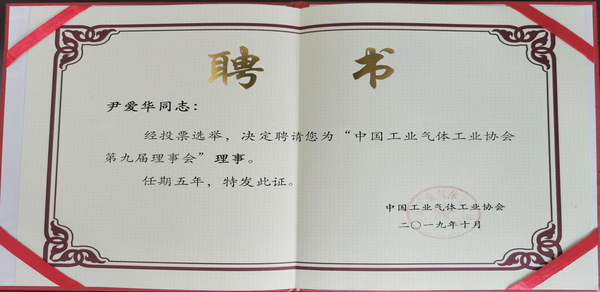 聘 书
尹爱华同志：
经投票选举，决定聘请您为“中国工业气体工业协会
第九届理事会”理事。
任期五年，特发此证。
中国工业气体工业协会
二〇一九年十月